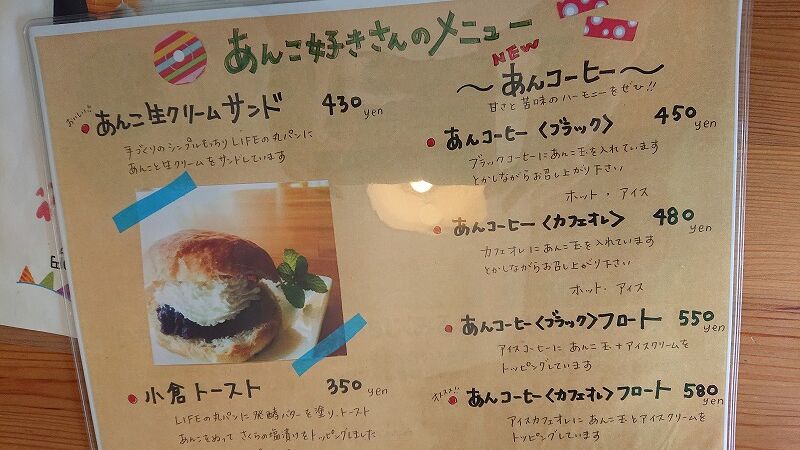 あんこ好きさんのメニュー
おいしい♡
あんこ生クリームサンド 430yen
手づくりのシンプルもっちりLIFEの丸パンに
あんこと生クリームをサンドしています
小倉トースト 350yen
LIFEの丸パンに発酵バターを塗り、トースト
あんこをぬって さくらの塩漬けをトッピングしました
NEW
～あんコーヒー～
甘さと苦味のハーモニーをぜひ!!
あんコーヒー〈ブラック〉 450yen
ブラックコーヒーにあんこ玉を入れています
とかしながらお召し上がり下さい
ホット・アイス
あんコーヒー〈カフェオレ〉 480yen
カフェオレにあんこ玉を入れています
とかしながらお召し上がり下さい
ホット・アイス
あんコーヒー〈ブラック〉フロート 550yen
アイスコーヒーに あんこ玉+アイスクリームを
トッピングしています
オススメ!!
あんコーヒー〈カフェオレ〉フロート 580yen
アイスカフェオレに あんこ玉とアイスクリームを
トッピングしています